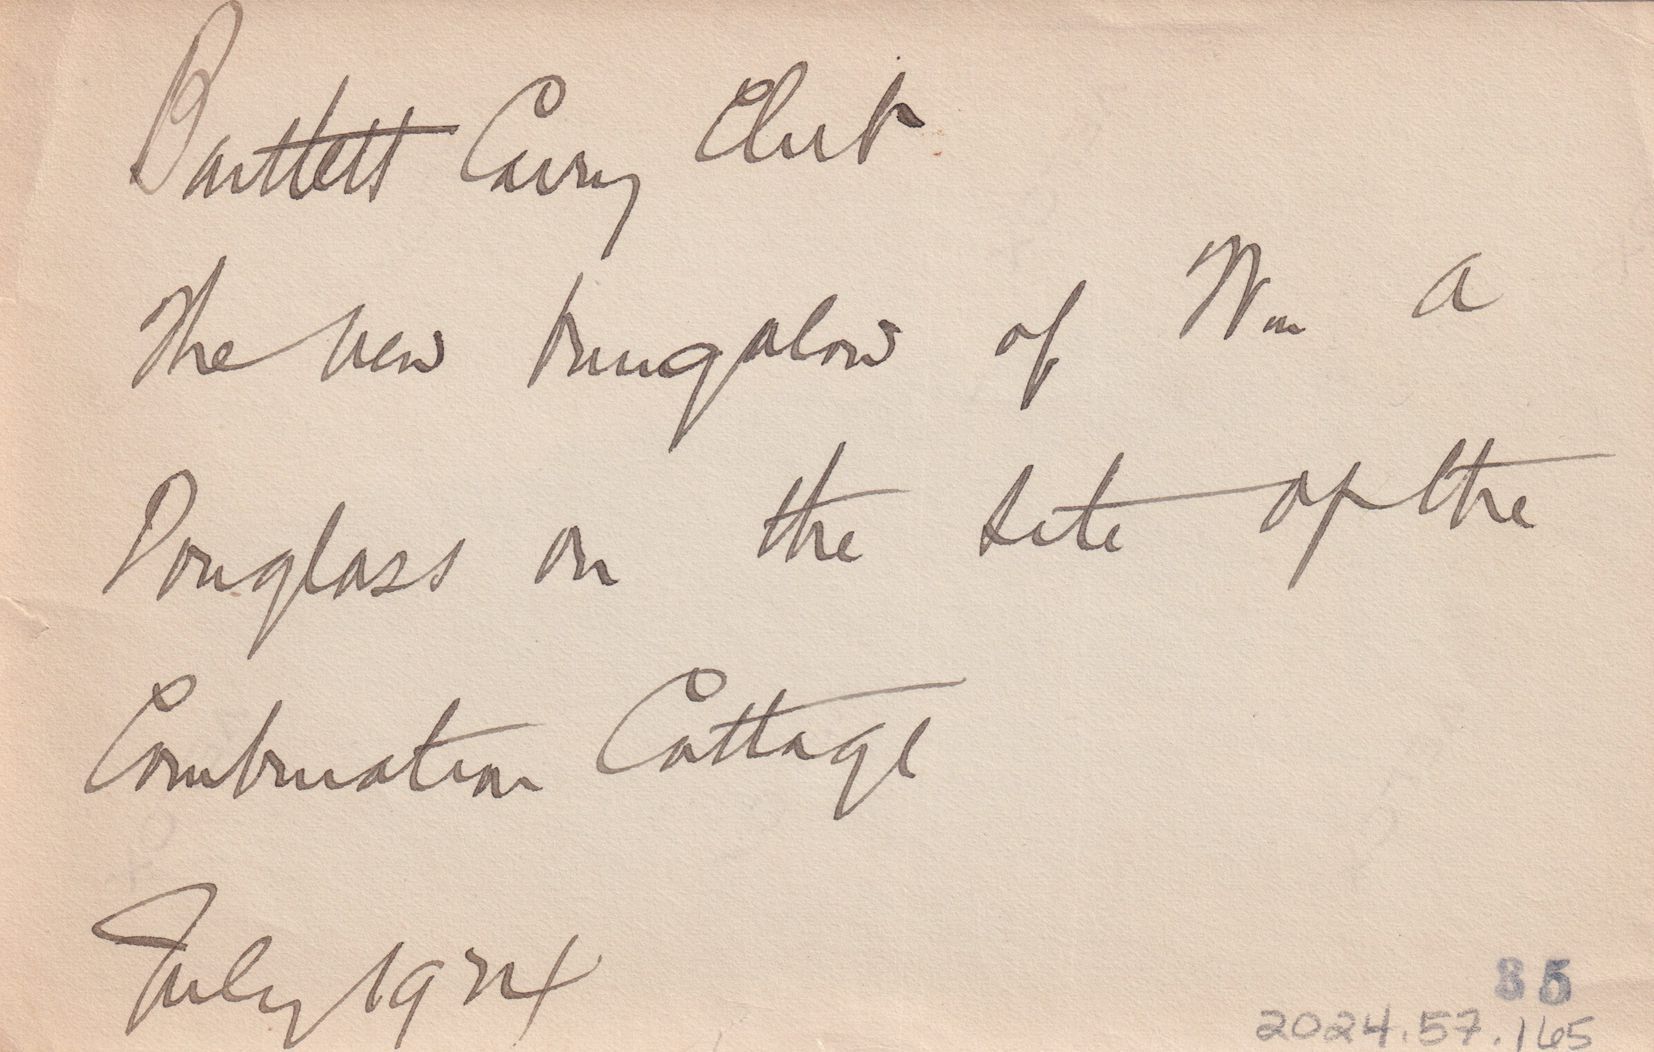 Bartlett Carry Club
The new bungalow of Wm A
Douglass on the site of the
Combination Cottage
July 1924
35
2024.57.165